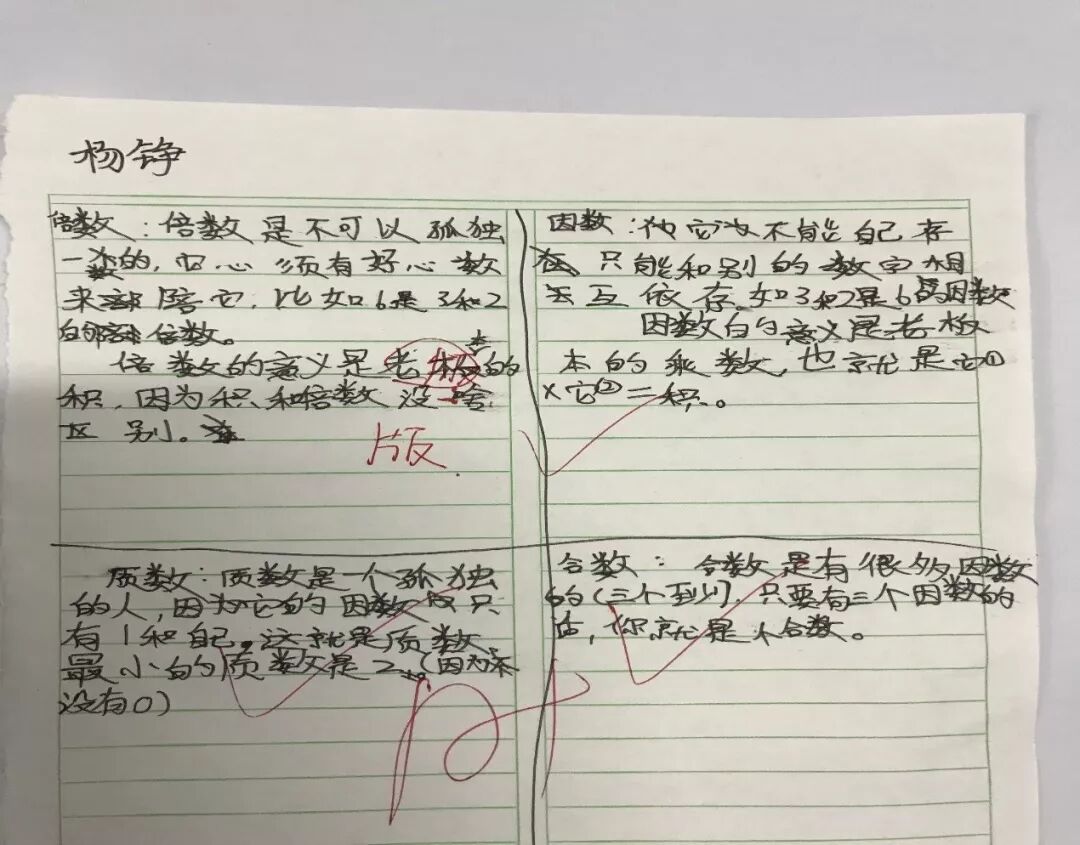 杨铮
倍数：倍数是不可以孤独
一数的，它心须有好心数
来陪它，比如6是3和2
的倍数。
倍数的意义是老板本的
积，因为积和倍数没啥
区别。
版
因数：它为不能自己存
在只能和别的数字相
互依存，如3和2是6的因数
因数的意义是老板
本的乘数，也就是它①
×它②=积。
质数：质数是一个孤独
的人，因为它的因数只
有1和自己，这就是质数，
最小的质数是2。（因为
没有0）
合数：合数是有很多因数
的（三个到），只要有三个因数的
话，你就是个合数。